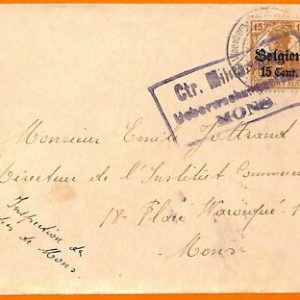 15
Belgien
15 Cent.
Ctr. Milit
Ueberwachungs
MONS
Monsieur Emile Jottrand
Directeur de l'Institut Commer
18 Place Warocqué 1
Mons
Inspection de
de Mons.